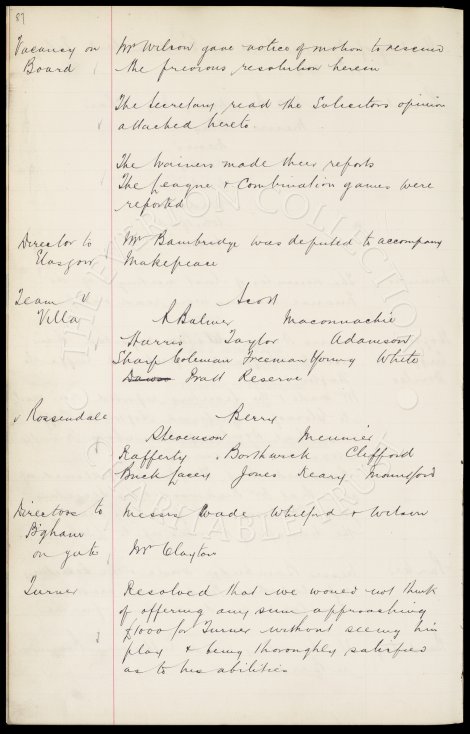 87
Vacancy on Mr Wilson gave notice of motion to rescind
Board the previous resolution herein
The Secretary read the Solicitors opinion
attached hereto
The trainers made their reports
The League & Combination games were
reported
Director to Mr Bambridge was deputed to accompany
Glasgow Makepeace
Team v Scott
Villa R Balmer Maconnachie
Harris Taylor Adamson
Sharp Coleman Freeman Young White
Dawson Pratt Reserve
v Rossendale Berry
Stevenson Meunier
Rafferty Borthwick Clifford
Buck Lacey Jones Keary Mountford
Directors to Messrs Wade Whitford & Wilson
B'gham
on gate Mr Clayton
Turner Resolved that we would not think
of offering any sum approaching
£1000 for Turner without seeing him
play & being thoroughly satisfied
as to his abilities
THE EVERTON COLLECTION
CHARITABLE TRUST